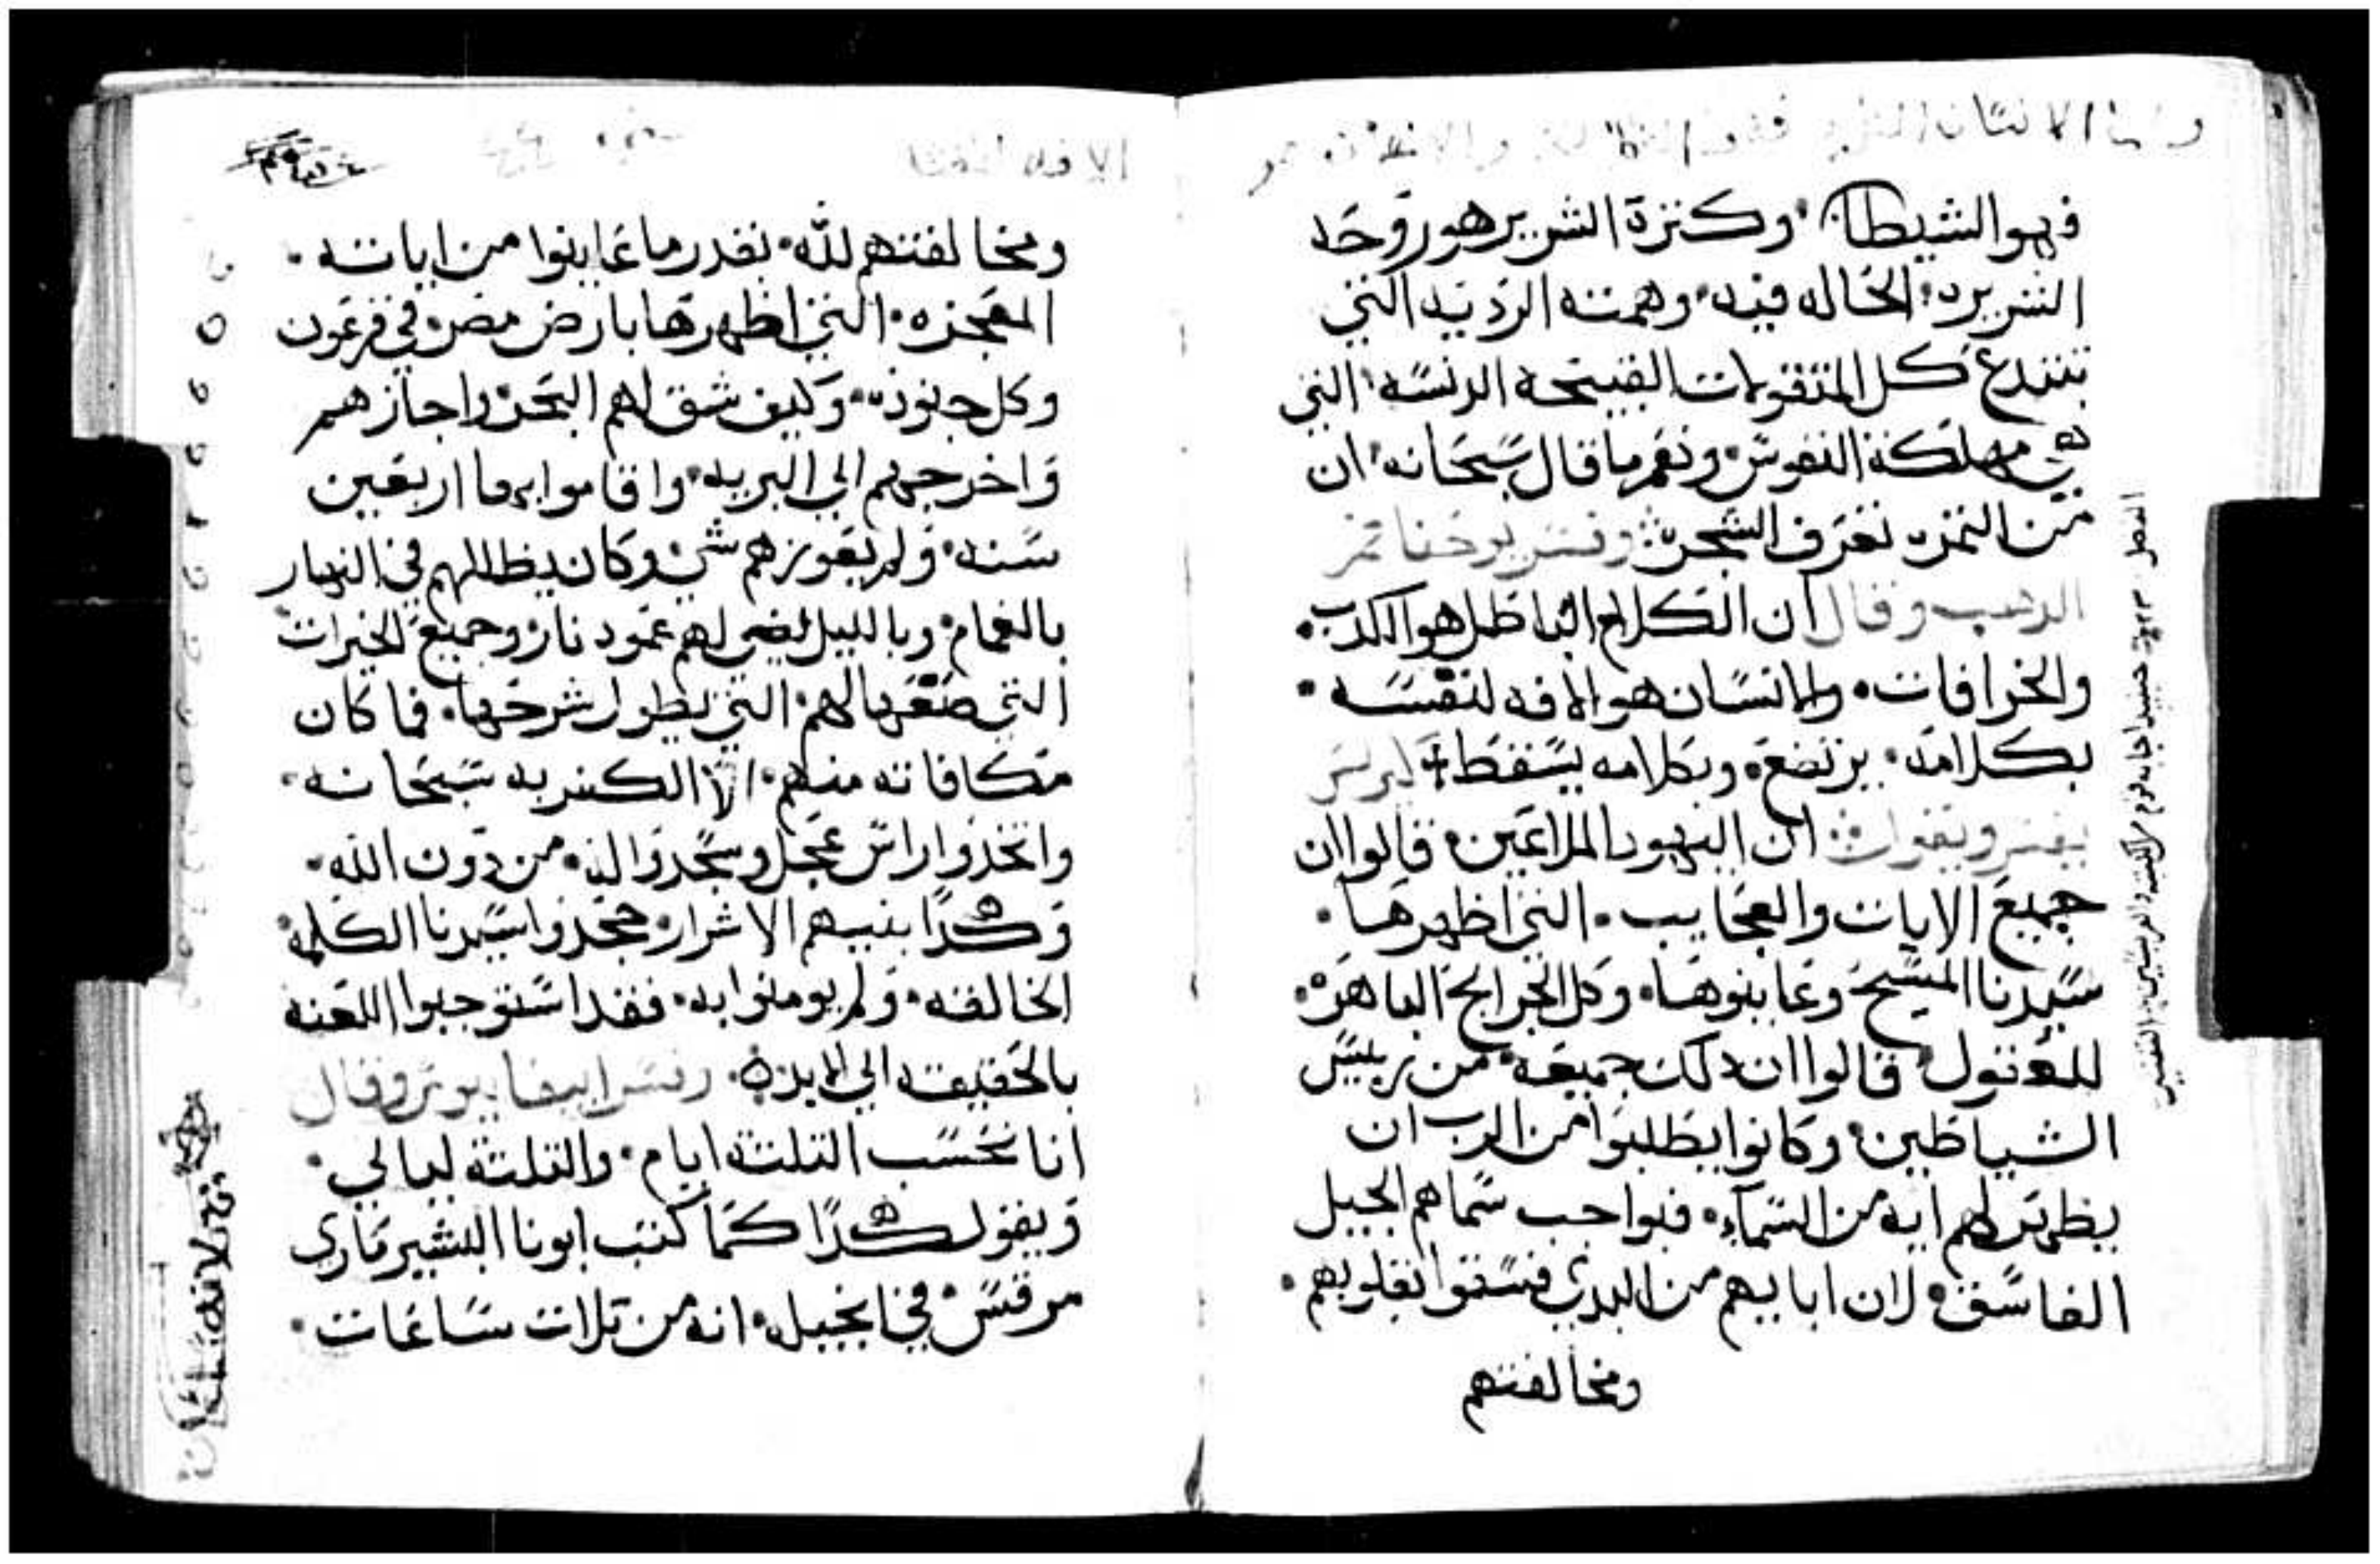 فهو الشيطان وكنزة الشرير هو روحه
الشريره الحاله فيه وهمته الرديه التي
تبتدع كل المتقولات القبيحه الدنسه التي
هي مهلكة النفوس ونعم ما قال سبحانه ان
من الثمره تعرف الشجره وفسر يوحنا فم
الدهب وقال ان الكلام الباطل هو الكدب
والخرافات والانسان هو الافه لنفسه
بكلامه يرتفع وبكلامه يسقط كيرلس
يفسر ويقول ان اليهود الملاعين قالوا ان
جميع الايات والعجايب التي اظهرها
سيدنا المسيح وعاينوها وكل الجرايح الباهره
للعقول قالوا ان دلك جميعه من رييس
الشياطين وكانوا يطلبوا من الرب ان
يظهر لهم ايه من السماء فبواجب سماهم الجيل
الفاسق لان ابايهم من البدي فسقوا بقلوبهم
ومخالفتهم
الفصل
ومخالفتهم لله بقدر ما عاينوا من اياته
المعجزه التي اظهرها بارض مصر في فرعون
وكل جنوده وكيف شق لهم البحر واجازهم
واخرجهم الي البريه واقاموا بها اربعين
سنه ولم يعوزهم شي وكان يظللهم في النهار
بالغمام وبالليل يضي لهم عمود نار وجميع الخيرات
التي صنعها لهم التي يطول شرحها فما كان
مكافاته منهم الا الكفر به سبحانه
واتخدوا راس عجل وسجدوا اليه من دون الله
وهكدا بنيهم الاشرار جحدوا سيدنا الكلمه
الخالقه ولم يومنوا به فقد استوجبوا اللعنه
بالحقيقه الي الابد وفسر ايضا وقال
انا نحسب التلتة ايام والتلتة ليالي
ويقول هكدا كما كتب ابونا البشير ماري
مرقس في انجيله انه من تلات ساعات